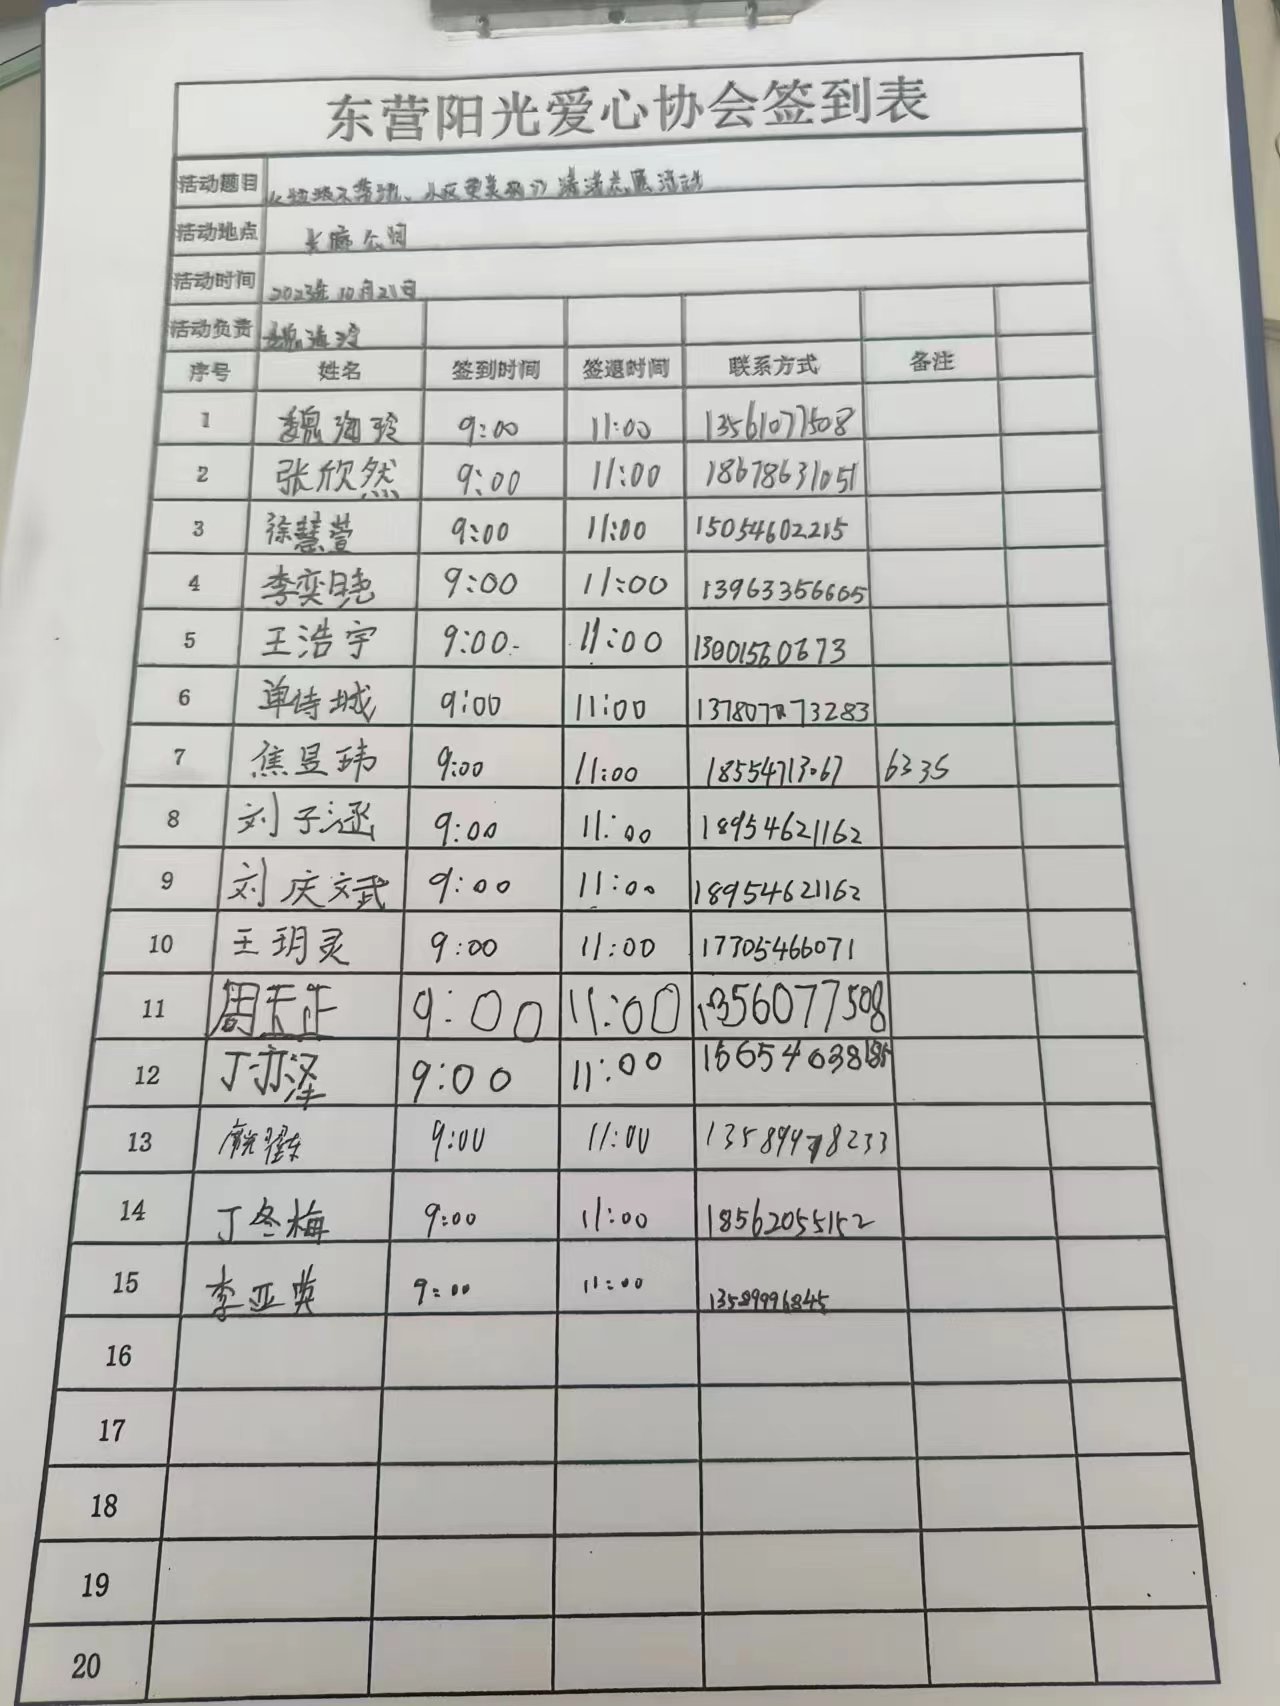 东营阳光爱心协会签到表
活动题目 垃圾不落地、小区更美丽 清洁志愿活动
活动地点 长廊公园
活动时间 2023年10月21日
活动负责 魏海玲
序号 姓名 签到时间 签退时间 联系方式 备注
1 魏海玲 9:00 11:00 13561077508
2 张欣然 9:00 11:00 18678631051
3 徐慧萱 9:00 11:00 15054602215
4 李奕晓 9:00 11:00 13963356665
5 王浩宇 9:00 11:00 13001560673
6 单诗城 9:00 11:00
7 焦昱玮 9:00 11:00 18554713067 6335
8 刘子涵 9:00 11:00 18954621162
9 刘庆斌 9:00 11:00 18954621162
10 王玥灵 9:00 11:00 17705466071
11 周天正 9:00 11:00 1356077508
12 丁亦泽 9:00 11:00
13 9:00 11:00
14 丁冬梅 9:00 11:00 18562055152
15 李亚英 9:00 11:00 13589996845
16
17
18
19
20